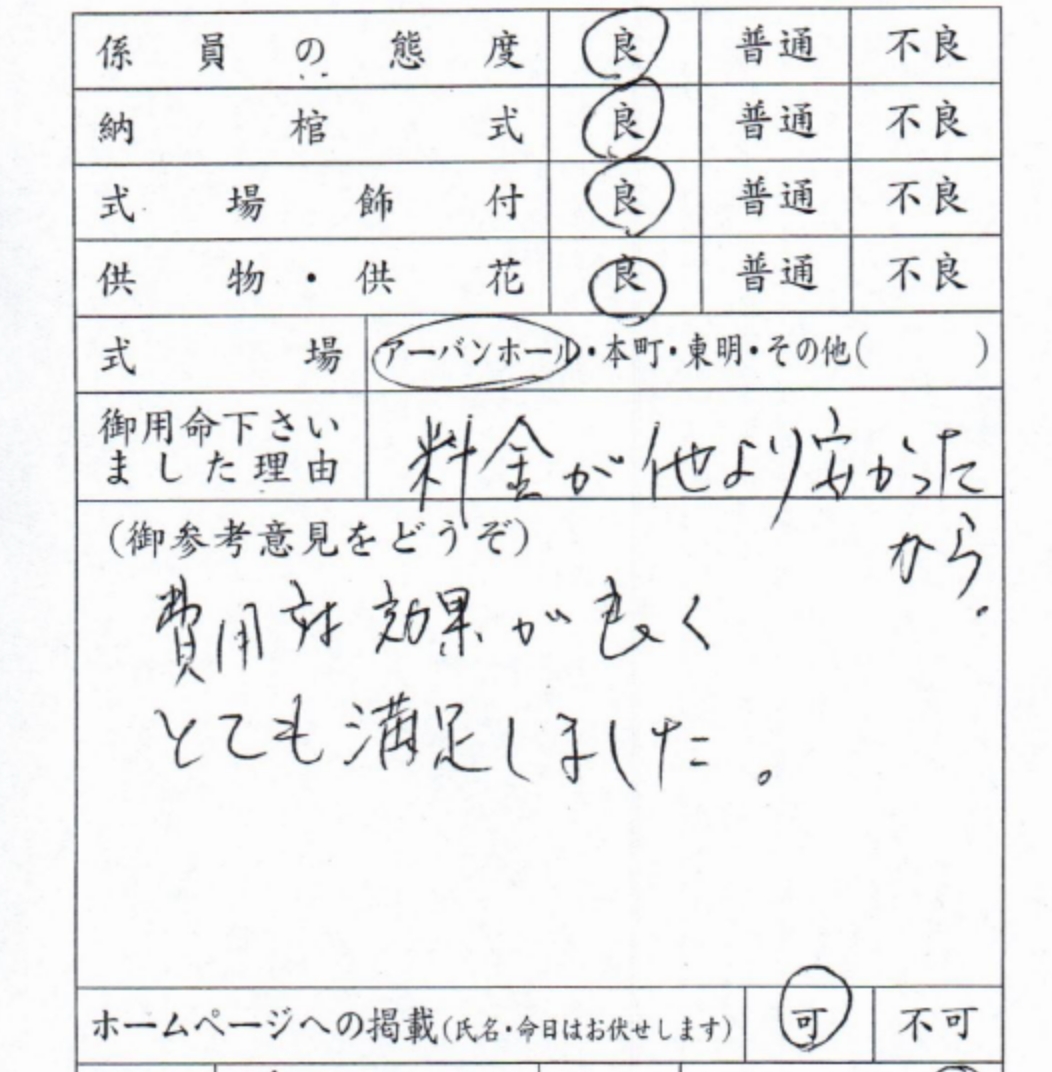 係員の態度 良 普通 不良
納棺式 良 普通 不良
式場飾付 良 普通 不良
供物・供花 良 普通 不良
式場 アーバンホール・本町・東明・その他( )
御用命下さい
ました理由
料金が他より安かった
から。
(御参考意見をどうぞ)
費用対効果が良く
とても満足しました。
ホームページへの掲載(氏名・命日はお伏せします) 可 不可